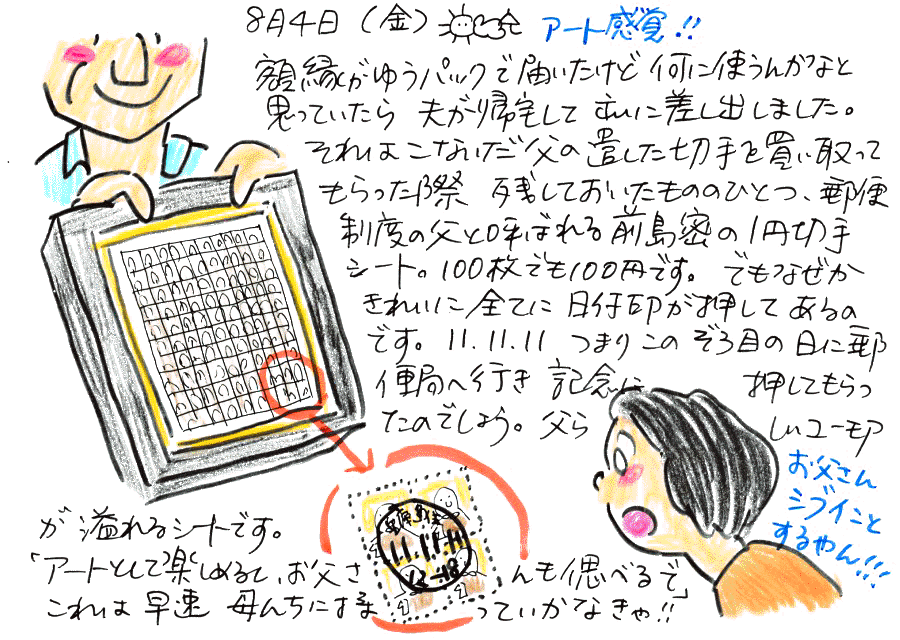 8月4日（金） アート感覚!!
額縁がゆうパックで届いたけど何に使うんかなと
思っていたら 夫が帰宅して おもむろに差し出しました。
それはこないだ父の遺した切手を買い取って
もらった際 残しておいたもののひとつ、郵便
制度の父と呼ばれる前島密の1円切手
シート。100枚でも100円です。でもなぜか
きれいに全てに日付印が押してあるの
です。11.11.11 つまりこのぞろ目の日に郵
便局へ行き 記念に 押してもらっ
たのでしょう。父ら しいユーモア
が溢れるシートです。
「アートとして楽しめるし、お父さ んも偲べるで」
これは早速 母んちにする っていかなきゃ!!
お父さん
シブイこと
するやん!!!
11.11.11
12-18